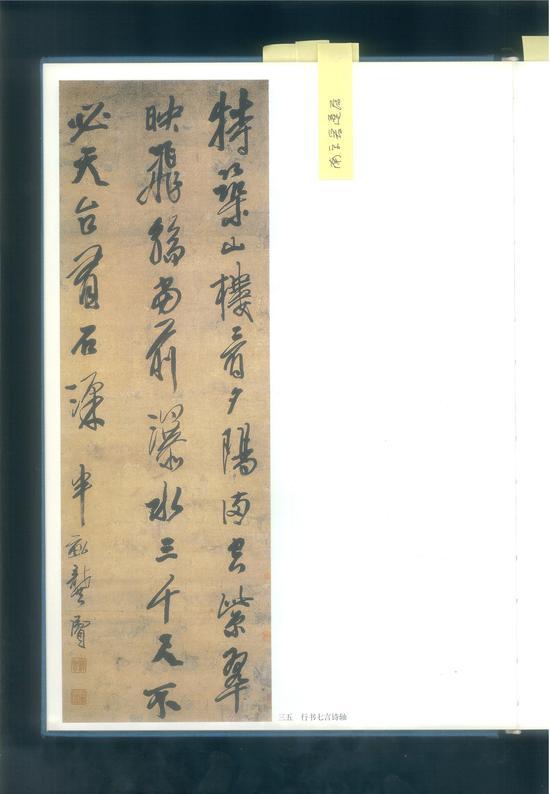 特築山樓看夕陽滿空紫翠
映飛觴當前瀑水三千尺不
必天台看石梁 半畝龔賢
三五 行书七言诗轴